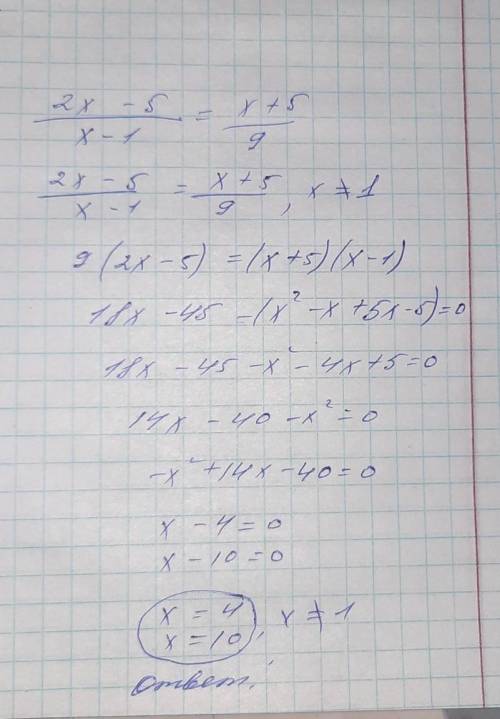 (2x - 5)/(x - 1) = (x + 5)/9
(2x - 5)/(x - 1) = (x + 5)/9, x ≠ 1
9(2x - 5) = (x + 5)(x - 1)
18x - 45 = (x² - x + 5x - 5) = 0
18x - 45 - x² - 4x + 5 = 0
14x - 40 - x² = 0
-x² + 14x - 40 = 0
x - 4 = 0
x - 10 = 0
x = 4
x = 10, x ≠ 1
ответ.